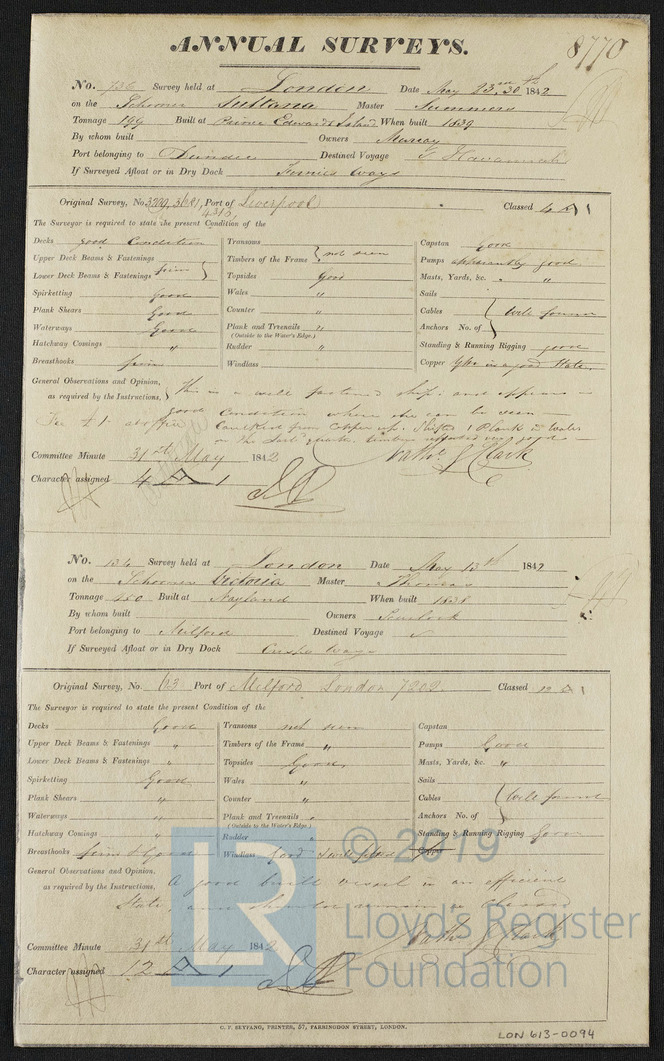 ANNUAL SURVEYS. 8770
No. 136 Survey held at London Date May 23 30th 1842
on the Schooner Sultana Master Summers
Tonnage 199 Built at Prince Edwards Island When built 1839
By whom built Owners Murray
Port belonging to Dundee Destined Voyage Havannah
If Surveyed Afloat or in Dry Dock ways
Original Survey, No. 3681, 4310, Port of Liverpool Classed 4 A 1
The Surveyor is required to state the present Condition of the
Decks good Condition Transoms Capstan Good
Upper Deck Beams & Fastenings Timbers of the Frame not seen Pumps apparently good
Lower Deck Beams & Fastenings firm Topsides Good Masts, Yards, &c. "
Spirketting Good Wales " Sails
Plank Shears Good Counter " Cables well found
Waterways Good Plank and Treenails " Anchors No. of
(Outside to the Water's Edge.)
Hatchway Comings " Rudder " Standing & Running Rigging good
Breasthooks firm Windlass " Copper in a good State
General Observations and Opinion, This is a well fastened ship: and appears in
as required by the Instructions, good Condition where she can be seen
Fee £1. Caulked from Copper up. Shifted 1 Plank in Wales
on the quarter, timbers good
Committee Minute 31st May 1842 Nathl. J Clark
Character assigned 4 A 1
No. 134 Survey held at London Date May 13th 1842
on the Schooner Victoria Master Thomas
Tonnage Built at Nayland When built 1838
By whom built Owners Scurlock
Port belonging to Milford Destined Voyage
If Surveyed Afloat or in Dry Dock
Original Survey, No. 63 Port of Milford London 7202. Classed 12 A 1
The Surveyor is required to state the present Condition of the
Decks Good Transoms not seen Capstan
Upper Deck Beams & Fastenings " Timbers of the Frame " Pumps Good
Lower Deck Beams & Fastenings " Topsides Good Masts, Yards, &c. "
Spirketting Good Wales " Sails
Plank Shears " Counter " Cables well found
Waterways " Plank and Treenails " Anchors No. of
(Outside to the Water's Edge.)
Hatchway Comings " Rudder " Standing & Running Rigging Good
Breasthooks firm & Good Windlass good Copper
General Observations and Opinion, A good built vessel in an efficient
as required by the Instructions, State, and remain as Classed
Committee Minute 31st May 1842 Nathl. J Clark
Character assigned 12 A 1
C. F. SEYFANG, PRINTER, 57, FARRINGDON STREET, LONDON.
LON 613-0094
LR
© 2019
Lloyd's Register
Foundation